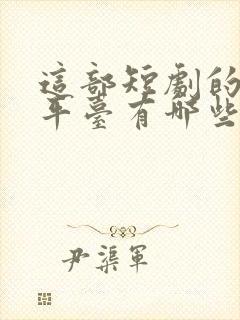 這部短劇的
平臺有哪些
尹渠軍